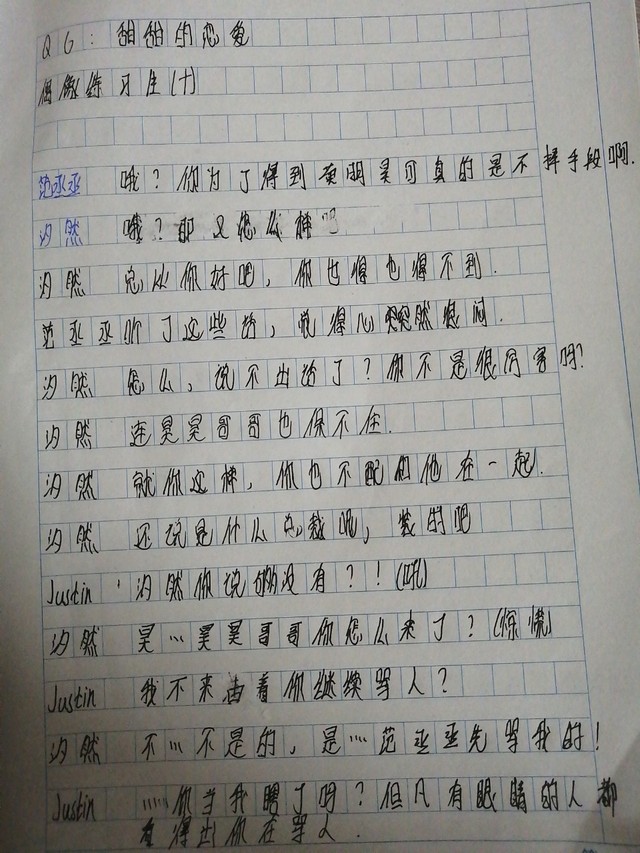 QG：甜甜的恋爱
偶像练习生(十)
范丞丞 哦？你为了得到黄明昊可真的是不择手段啊.
汐然 哦？那又怎么样
汐然 总比你好吧，你也得也得不到.
范丞丞听了这些话，觉得心突然很闷.
汐然 怎么，说不出话了？你不是很厉害吗？
汐然 连昊昊哥哥也保不住.
汐然 就你这样，你也不配和他在一起.
汐然 还说是什么总裁呢，装的吧
Justin 汐然你说够没有？！(吼)
汐然 昊…昊昊哥哥你怎么来了？(惊慌)
Justin 我不来由着你继续骂人？
汐然 不…不是的，是…范丞丞先骂我的！
Justin ……你当我瞎了吗？但凡有眼睛的人都
看得出你在骂人.